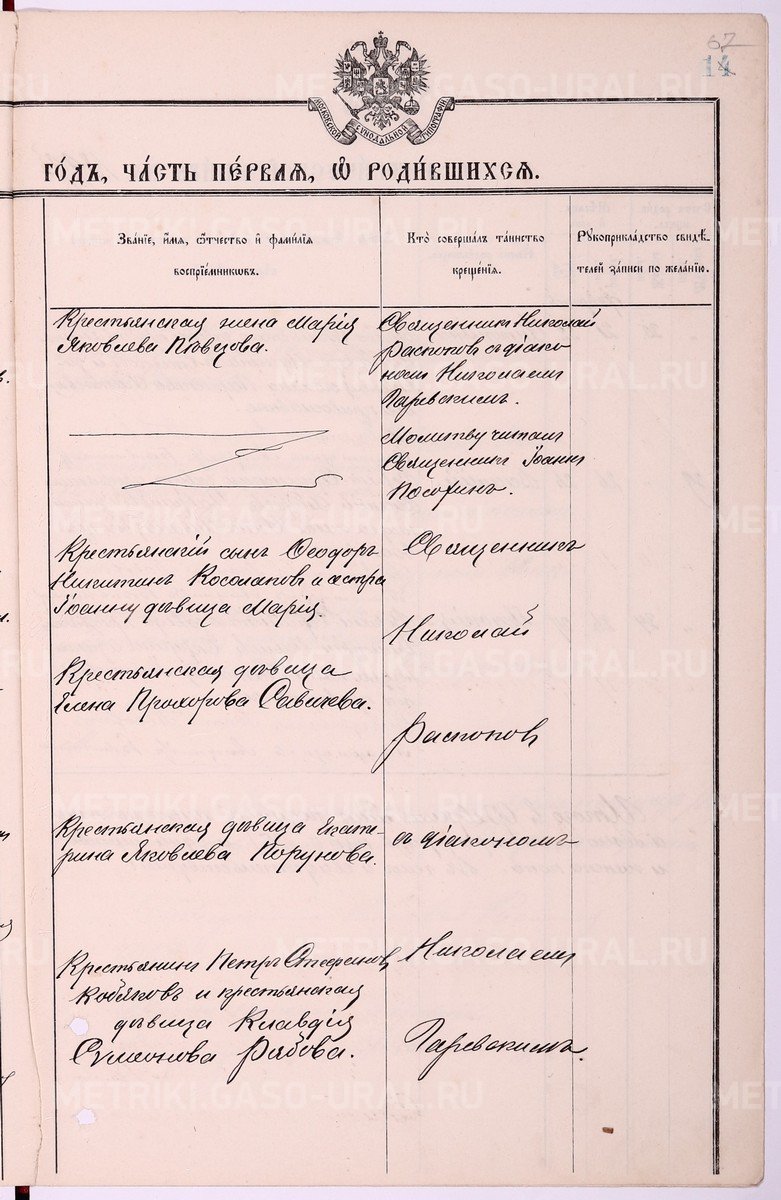 67
14
МОСКОВСКОЙ СѴНОДАЛЬНОЙ ТИПОГРАФІИ
ГО́ДЪ, ЧА́СТЬ ПЕ́РВАЯ, Ѽ РОДИ́ВШИХСЯ.
Зва́ніе, и҆́мя, ѻ҆́тчество и҆ фами́лія
воспріе́мникѡвъ.
Кто̀ соверша́лъ та́инство
креще́нія.
Рꙋкоприкла́дство свидѣ́-
телей за́писи по жела́нію.
Крестьянская жена Марія
Яковлева Пѣвцова.
Священникъ Николай
Распоповъ съ діако-
номъ Николаемъ
Гаревскимъ.
Молитву читалъ
Священникъ Іоаннъ
Посохинъ.
Крестьянскій сынъ Ѳеодоръ
Никитинъ Косолаповъ и сестра
Іоанну дѣвица Марія.
Священникъ
Николай
Крестьянская дѣвица
Елена Прохорова Савичева.
Распоповъ
Крестьянская дѣвица Екате-
рина Яковлева Порунова.
съ діакономъ
Крестьянинъ Петръ Стефановъ
Кобяковъ и крестьянская
дѣвица Клавдія
Симеонова Рябова.
Николаемъ
Гаревскимъ.
METRIKI.GASO-URAL.RU